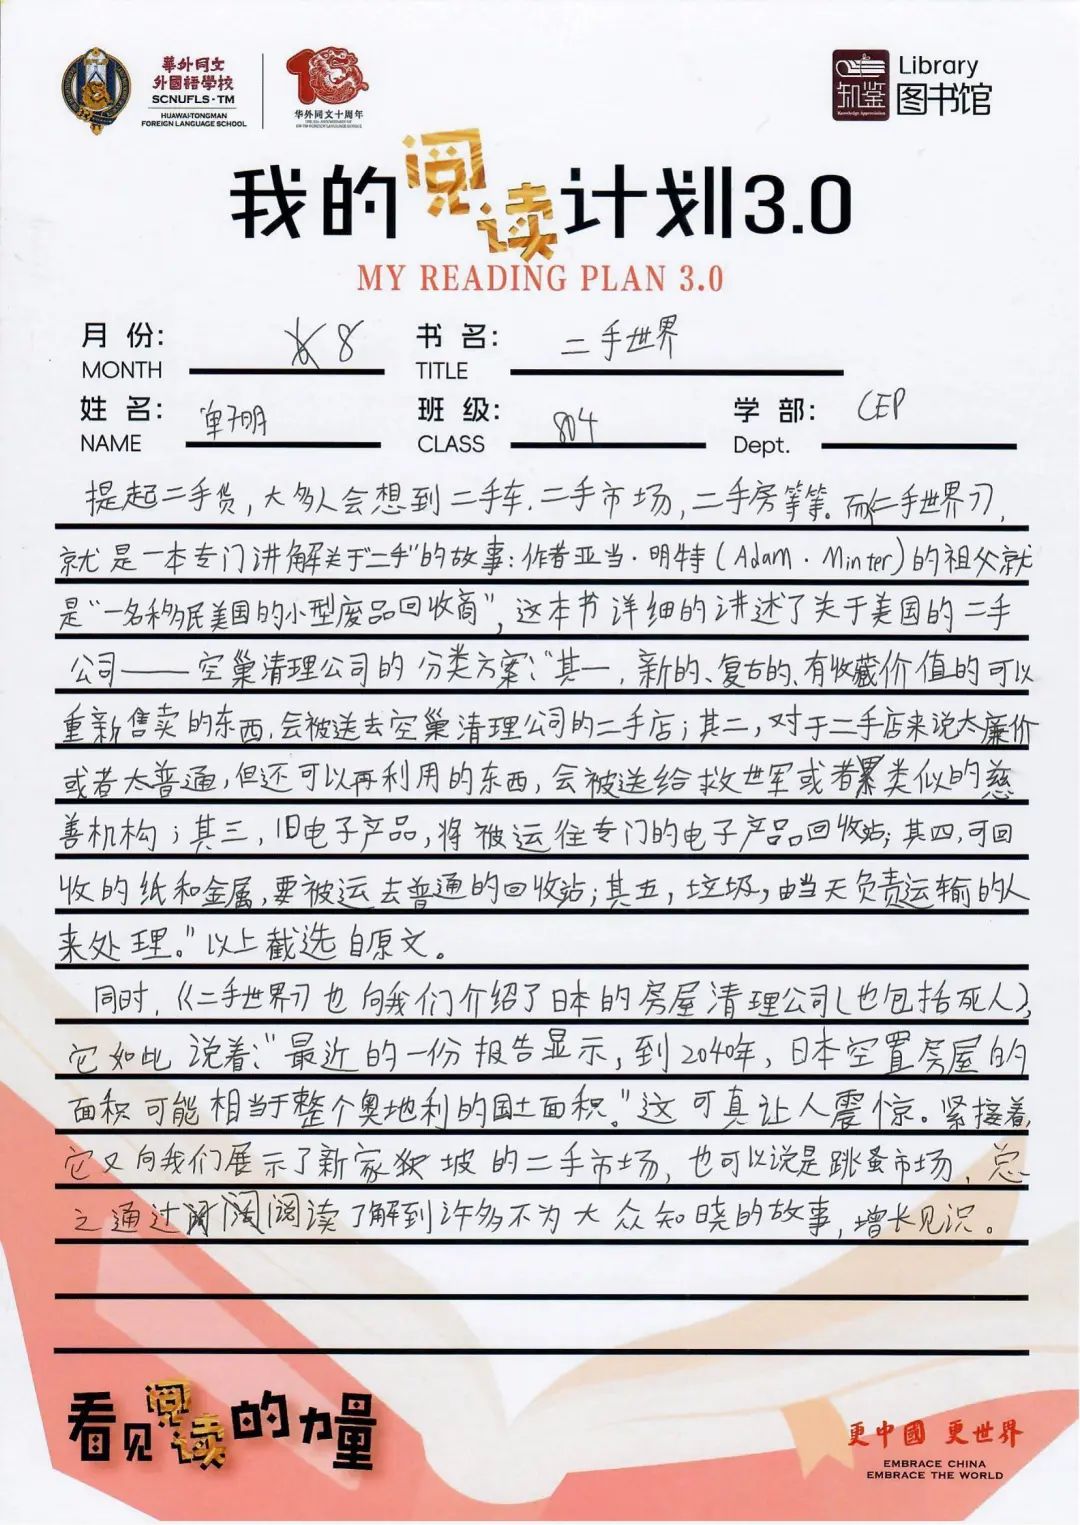 華外同文
外國語學校
SCNUFLS·TM
HUAWAI-TONGMAN
FOREIGN LANGUAGE SCHOOL
10
华外同文十周年
知鉴
Knowledge Appreciation
Library
图书馆
我的阅读计划3.0
MY READING PLAN 3.0
月 份: 8
MONTH
书 名: 二手世界
TITLE
姓 名: 单珊
NAME
班 级: 804
CLASS
学 部: CEP
Dept.
提起二手货，大多人会想到二手车.二手市场，二手房等等。而《二手世界》，
就是一本专门讲解关于“二手”的故事：作者亚当·明特(Adam·Minter)的祖父就
是“一名移民美国的小型废品回收商”，这本书详细的讲述了关于美国的二手
公司——空巢清理公司的分类方案：“其一，新的、复古的、有收藏价值的可以
重新售卖的东西，会被送去空巢清理公司的二手店；其二，对于二手店来说太廉价
或者太普通，但还可以再利用的东西，会被送给救世军或者类似的慈
善机构；其三，旧电子产品，将被运往专门的电子产品回收站；其四，可回
收的纸和金属，要被运去普通的回收站；其五，垃圾，由当天负责运输的人
来处理。”以上截选自原文。
同时，《二手世界》也向我们介绍了日本的房屋清理公司(也包括死人)，
它如此说着：“最近的一份报告显示，到2040年，日本空置房屋的
面积可能相当于整个奥地利的国土面积。”这可真让人震惊。紧接着，
它又向我们展示了新家狄坡的二手市场，也可以说是跳蚤市场，总
之通过阅读了解到许多不为大众知晓的故事，增长见识。
看见阅读的力量
更中國 更世界
EMBRACE CHINA
EMBRACE THE WORLD